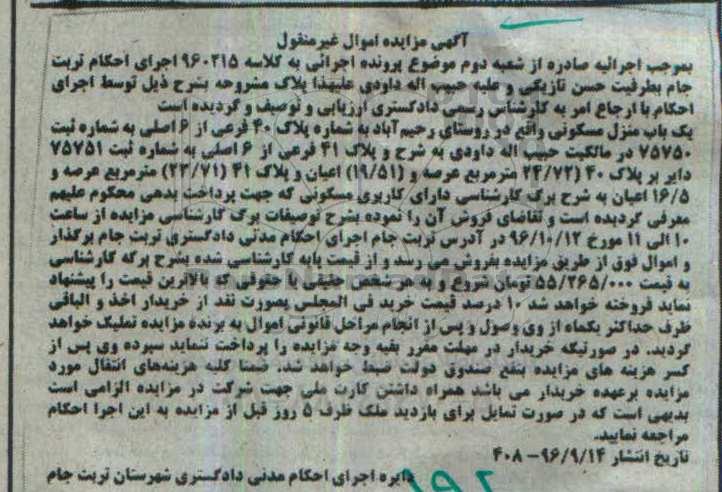 آگهی مزایده اموال غیرمنقول
بموجب اجرائیه صادره از شعبه دوم موضوع پرونده اجرائی به کلاسه ۹۶۰۲۱۵ اجرای احکام تربت
جام بطرفیت حسن نازیکی و علیه حبیب اله داودی علیهذا پلاک مشروحه بشرح ذیل توسط اجرای
احکام با ارجاع امر به کارشناس رسمی دادگستری ارزیابی و توصیف و گردیده است
یک باب منزل مسکونی واقع در روستای رحیم آباد به شماره پلاک ۴۰ فرعی از ۶ اصلی به شماره ثبت
۷۵۷۵۰ در مالکیت حبیب اله داودی به شرح و پلاک ۴۱ فرعی از ۶ اصلی به شماره ثبت ۷۵۷۵۱
دایر بر پلاک ۴۰ (۲۴/۷۲ مترمربع عرصه و (۱۹/۵۱) اعیان و پلاک ۴۱ (۲۳/۷۱) مترمربع عرصه و
۱۶/۵ اعیان به شرح برگ کارشناسی دارای کاربری مسکونی که جهت پرداخت بدهی محکوم علیهم
معرفی گردیده است و تقاضای فروش آن را نموده بشرح توصیفات برگ کارشناسی مزایده از ساعت
۱۰ الی ۱۱ مورخ ۹۶/۱۰/۱۲ در آدرس تربت جام اجرای احکام مدنی دادگستری تربت جام برگذار
و اموال فوق از طریق مزایده بفروش می رسد و از قیمت پایه کارشناسی شده بشرح برگه کارشناسی
به قیمت ۵۵/۲۶۵/۰۰۰ تومان شروع و به هر شخص حقیقی یا حقوقی که بالاترین قیمت را پیشنهاد
نماید فروخته خواهد شد ۱۰ درصد قیمت خرید فی المجلس بصورت نقد از خریدار اخذ و الباقی
ظرف حداکثر یکماه از وی وصول و پس از انجام مراحل قانونی اموال به برنده مزایده تملیک خواهد
گردید. در صورتیکه خریدار در مهلت مقرر بقیه وجه مزایده را پرداخت ننماید سپرده وی پس از
کسر هزینه های مزایده بنفع صندوق دولت ضبط خواهد شد. ضمنا کلیه هزینه‌های انتقال مورد
مزایده برعهده خریدار می باشد همراه داشتن کارت ملی جهت شرکت در مزایده الزامی است
بدیهی است که در صورت تمایل برای بازدید ملک ظرف ۵ روز قبل از مزایده به این اجرا احکام
مراجعه نمایید.
تاریخ انتشار ۹۶/۹/۱۴- ۴۰۸
دایره اجرای احکام مدنی دادگستری شهرستان تربت جام